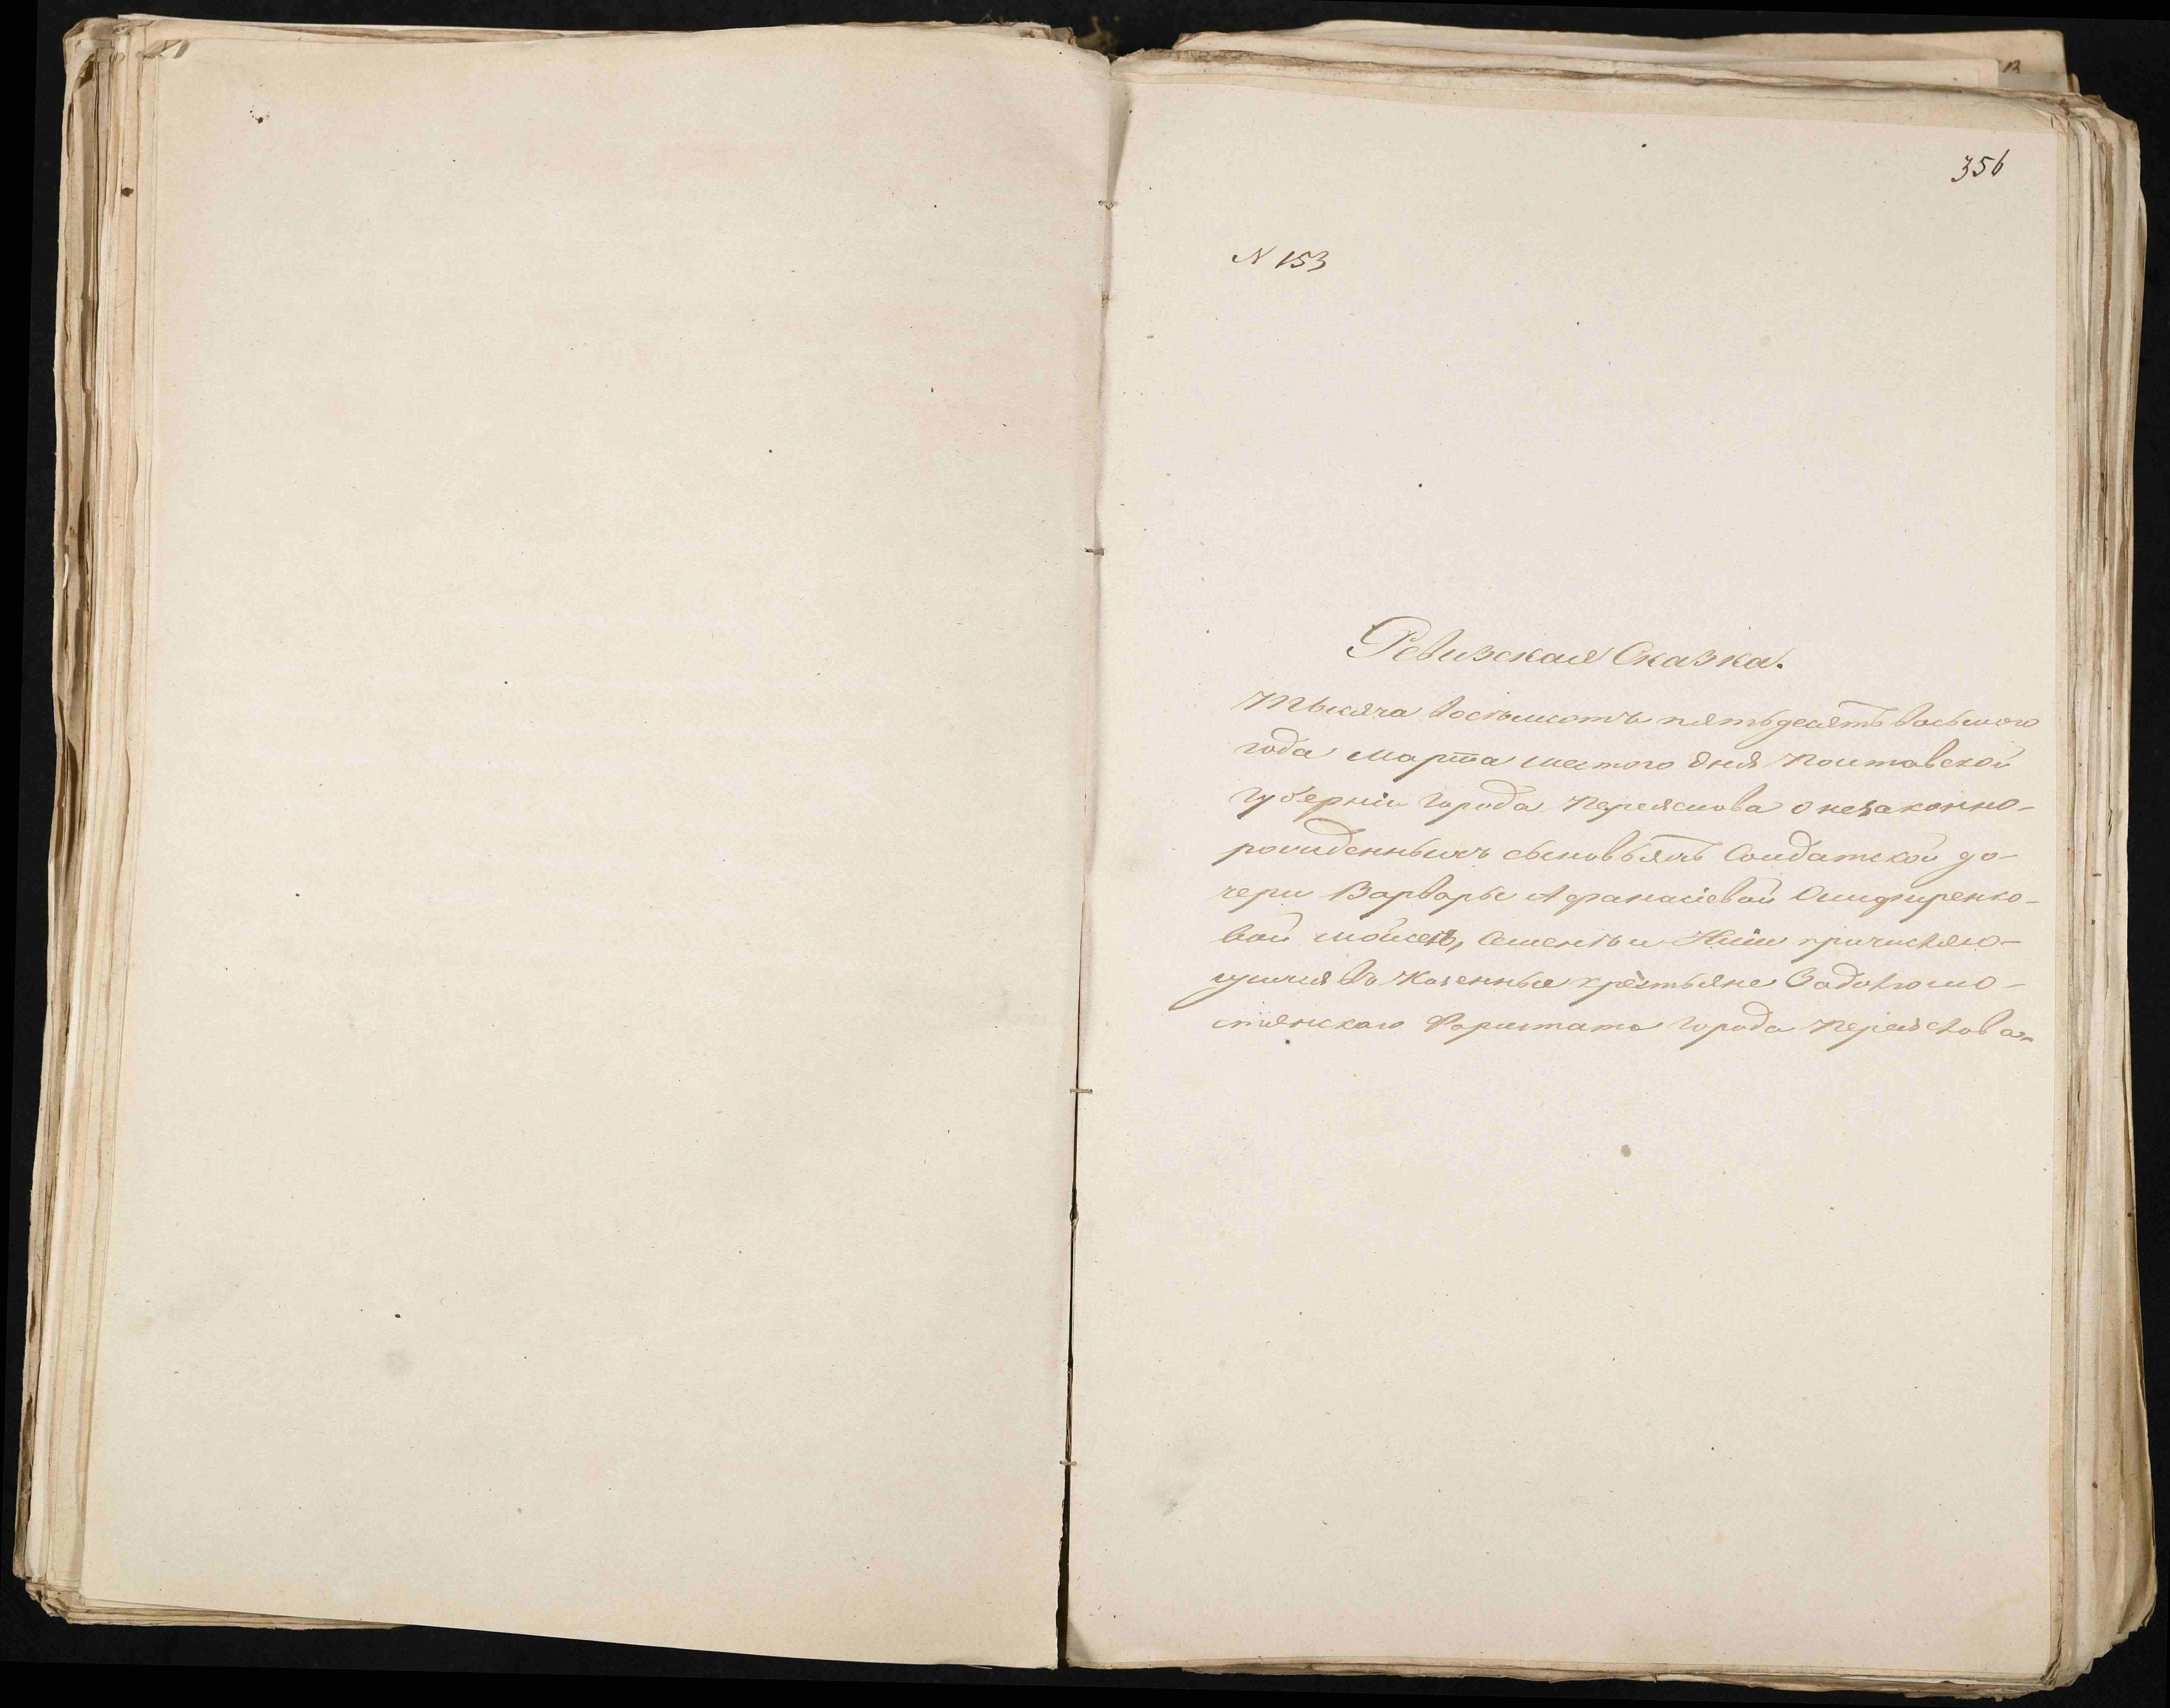 356
N 153
Ревизская Сказка.
Тысяча восемьсотъ пятьдесятъ восьмого
года марта шестого дня Полтавской
губерніи города Переяслова о незаконно-
рожденныхъ сыновьяхъ Солдатской до-
чери Варвары Афанасіевой
вой Мойсеѣ, Семенѣ и причисляю-
щихся въ казенные крестьяне Задолгомо-
стянскаго Форштата города Переяслова.